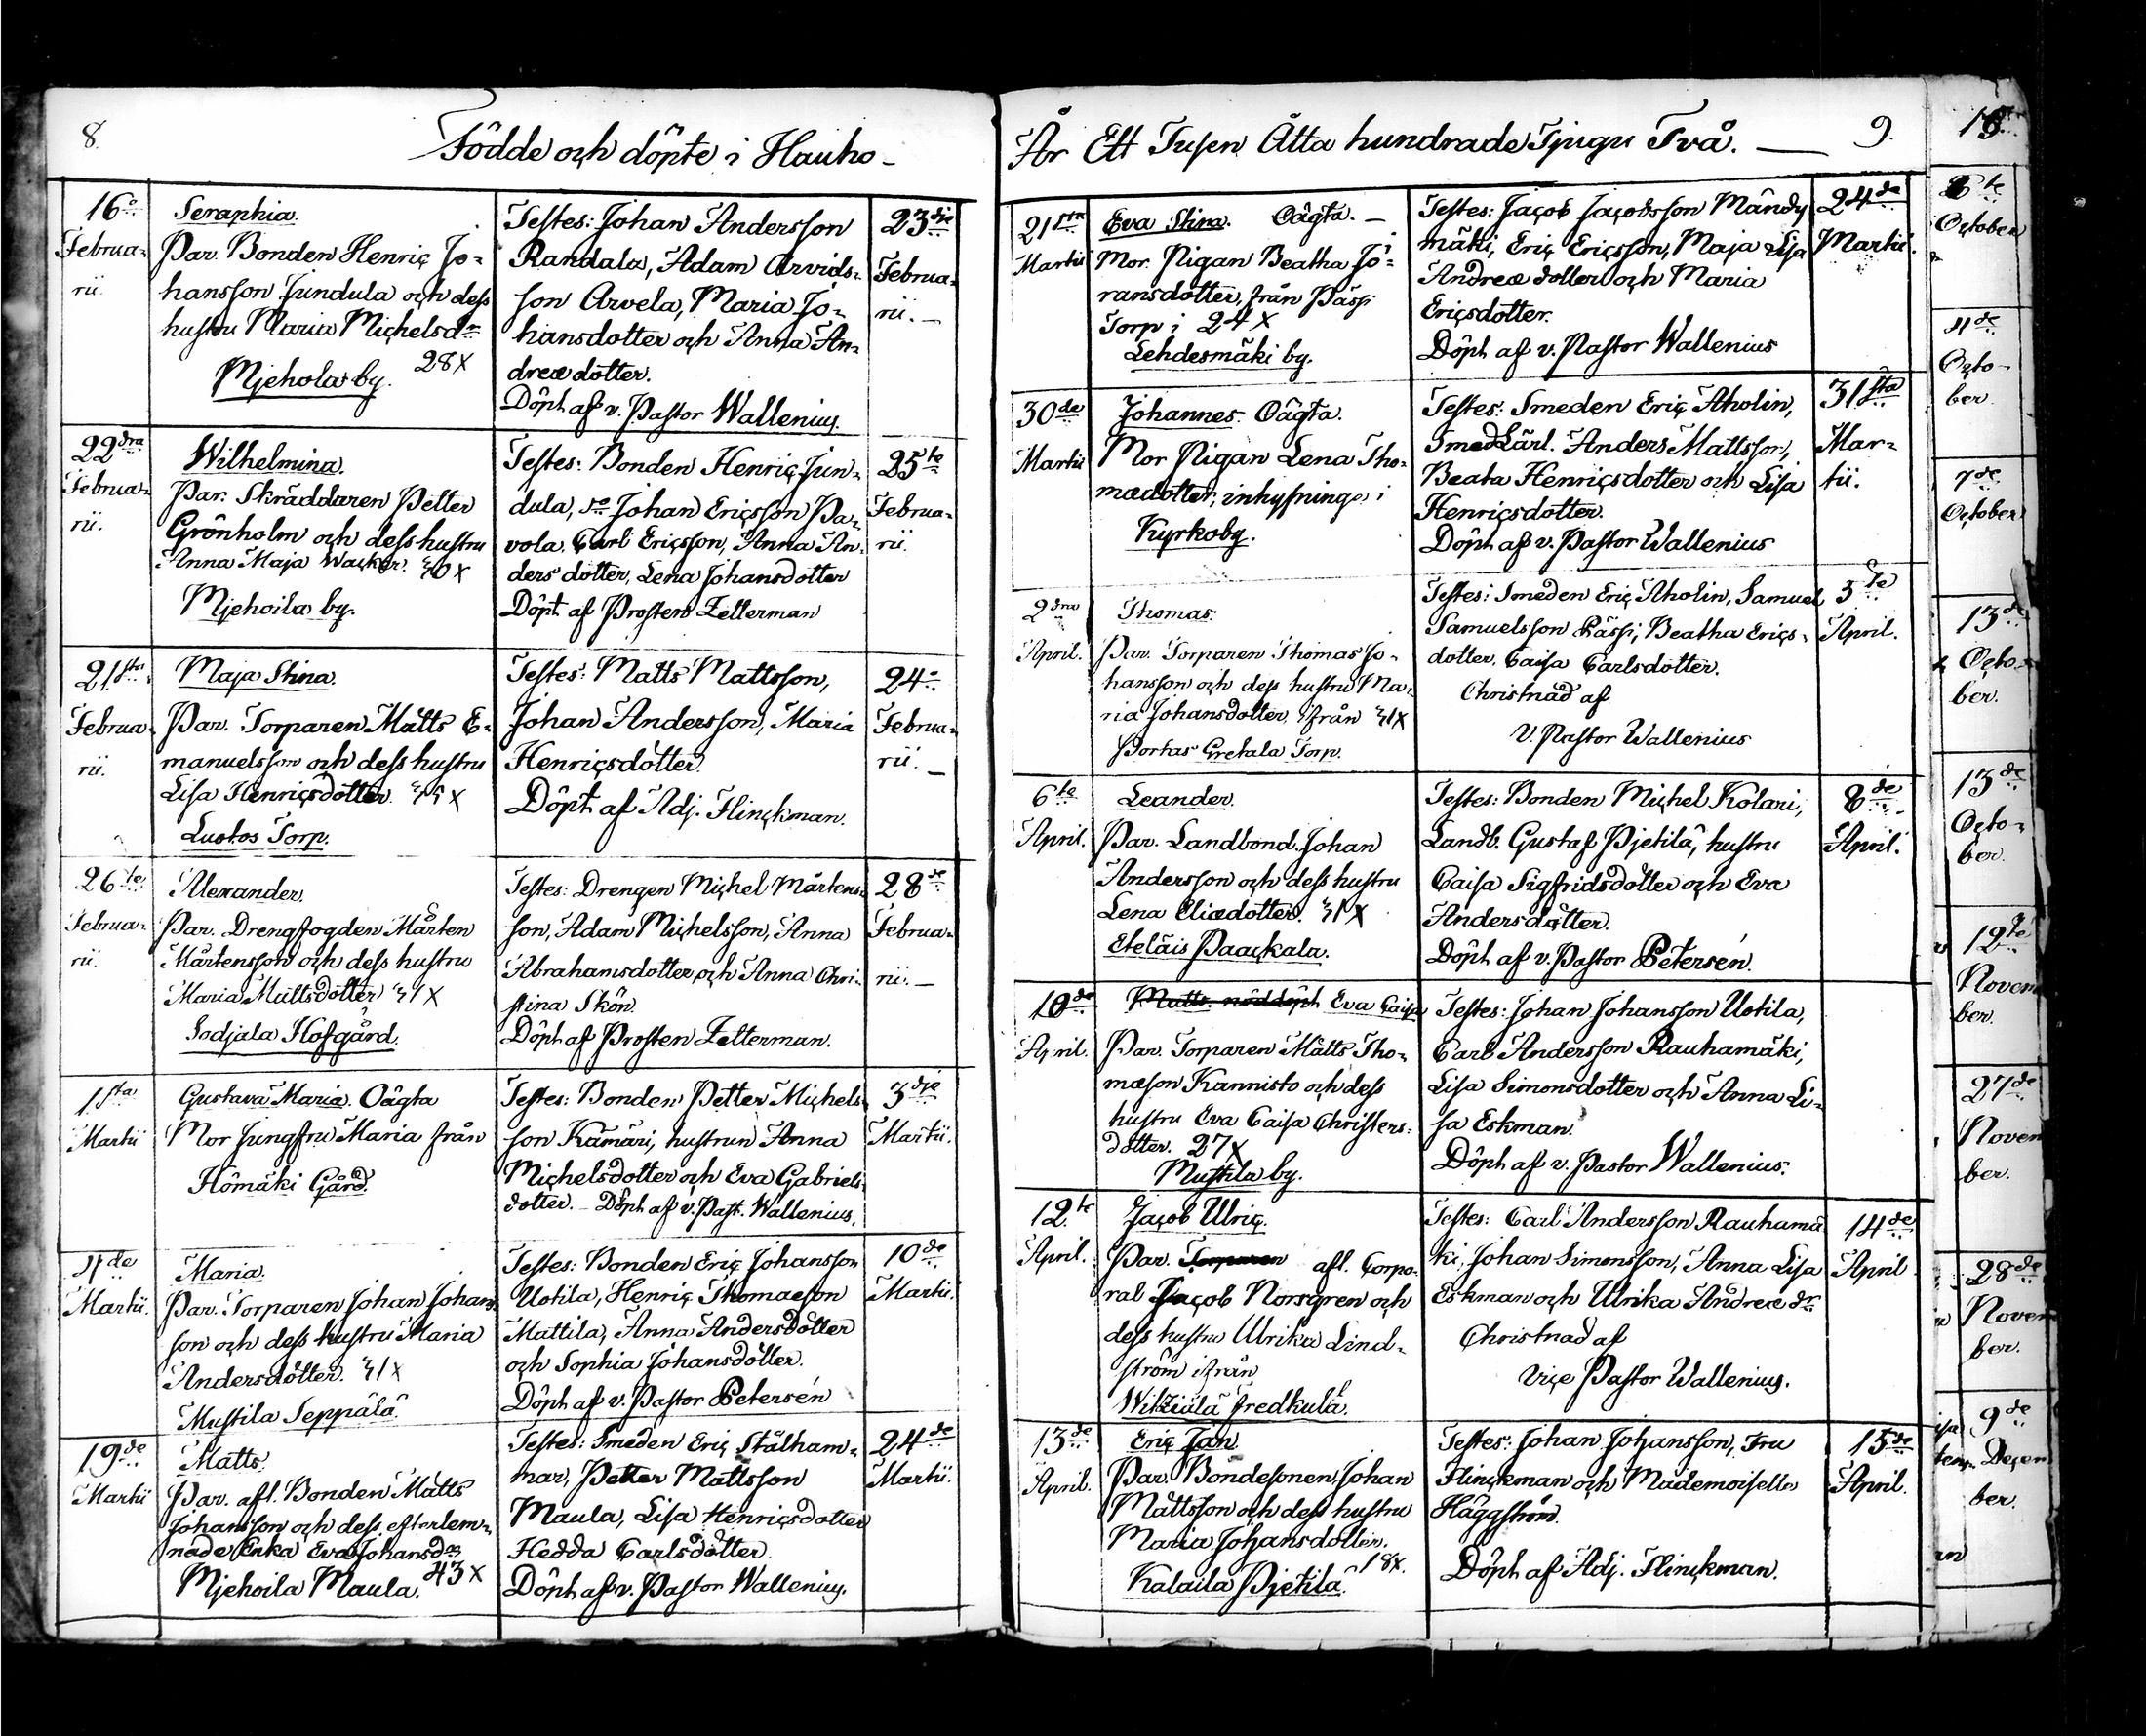 8.
Födde och döpte i Hauho -
16de
Februa-
rii.
Seraphia.
Par. Bonden Henric Jo-
hansson Jundula och dess
hustru Maria Michelsdr
28 X
Mjehola by.
Testes: Johan Andersson
Randala, Adam Arvids-
son Arvela, Maria Jo-
hansdotter och Anna An-
dreæ dotter.
Döpt af v. Pastor Wallenius.
23dje
Februa-
rii. -
22dra
Februa-
rii.
Wilhelmina.
Par. Skräddaren Petter
Grönholm och dess hustru
Anna Maja Wacker. 30 X
Mjehoila by.
Testes: Bonden Henric Jun-
dula, Johan Ericsson Pa-
vola, Carl Ericsson, Anna An-
ders dotter, Lena Johansdotter
Döpt af Prosten Zetterman
25te
Februa-
rii.
21sta
Februa-
rii.
Maja Stina.
Par. Torparen Matts E-
manuelsson och dess hustru
Lisa Henricsdotter. 35 X
Luotos Torp.
Testes: Matts Mattsson,
Johan Andersson, Maria
Henricsdotter.
Döpt af Adj. Flinckman.
24
Februa-
rii. -
26te
Februa-
rii.
Alexander.
Par. Drengfogden Mårten
Mårtensson och dess hustru
Maria Mattsdotter 31 X
Sodjala Hofgård.
Testes: Drengen Michel Mårtens-
son, Adam Michelsson, Anna
Abrahamsdotter och Anna Chri-
stina Skön.
Döpt af Prosten Zetterman.
28de
Februa-
rii. -
1sta
Martii
Gustava Maria. Oägta
Mor Jungfru Maria från
Hömäki Gård.
Testes: Bonden Petter Michels-
son Kämäri, hustrun Anna
Michelsdotter och Eva Gabriels-
dotter. - Döpt af v. Past. Wallenius.
3dje
Martii.
4de
Martii.
Maria.
Par. Torparen Johan Johans-
son och dess hustru Maria
Andersdotter. 31 X
Mustila Seppälä.
Testes: Bonden Eric Johansson
Uotila, Henric Thomæson
Mattila, Anna Andersdotter
och Sophia Johansdotter.
Döpt af v. Pastor Petersén
10de
Martii.
19de
Martii
Matts.
Par. afl. Bonden Matts
Johansson och dess efterlem-
nade Enka Eva Johansdr
43 X
Mjehoila Maula.
Testes: Smeden Eric Stålham-
mar, Petter Mattsson
Maula, Lisa Henricsdotter
Hedda Carlsdotter.
Döpt af v. Pastor Wallenius.
24de
Martii.
År Ett Tusen Åtta hundrade Tjugu Två. —
9.
21sta
Martii
Eva Stina. Oägta. -
Mor. Pigan Beatha Jö-
ransdotter, från Pässi
Torp i 24 X
Lehdesmäki by.
Testes: Jacob Jacobsson Mändy
mäki, Eric Ericsson, Maja Lisa
Andreæ dotter och Maria
Ericsdotter.
Döpt af v. Pastor Wallenius
24de
Martii.
30de
Martii
Johannes. Oägta.
Mor Pigan Lena Tho-
mædotter, inhysninge i
Kyrkoby.
Testes: Smeden Eric Aholin,
Smed Lärl. Anders Mattsson,
Beata Henricsdotter och Lisa
Henricsdotter.
Döpt af v. Pastor Wallenius
31sta
Mar-
tii.
2dra
April.
Thomas.
Par. Torparen Thomas Jo-
hansson och dess hustru Ma-
ria Johansdotter, ifrån 31 X
Portas Gretala Torp.
Testes: Smeden Eric Aholin, Samuel
Samuelsson Pässi, Beatha Erics-
dotter, Caisa Carlsdotter.
Christnad af
V. Pastor Wallenius
5te
April.
6te
April.
Leander.
Par. Landbond. Johan
Andersson och dess hustru
Lena Eliædotter. 31 X
Eteläis Paackala.
Testes: Bonden Michel Kolari,
Landb. Gustaf Pjetilä, hustru
Caisa Sigfridsdotter och Eva
Andersdotter.
Döpt af v. Pastor Petersén.
8de
April.
10de
April.
Matts. nöddöpt Eva Caisa
Par. Torparen Matts Tho-
mæson Kannisto och dess
hustru Eva Caisa Christers-
dotter. 27 X
Mustila by.
Testes: Johan Johansson Uotila,
Carl Andersson Rauhamäki,
Lisa Simonsdotter och Anna Li-
sa Eskman.
Döpt af v. Pastor Wallenius.
12te
April.
Jacob Ulric.
Par. Torparen afl. Corpo-
ral Jacob Norsgren och
dess hustru Ulrika Lind-
ström ifrån
Witziälä Fredkulä.
Testes: Carl Andersson Rauhamä
ki, Johan Simonsson, Anna Lisa
Eskman och Ulrika Andreæ dr.
Christnad af
vice Pastor Wallenius.
14de
April
13de
April.
Eric Jan.
Par. Bondesonen Johan
Mattsson och dess hustru
Maria Johansdotter.
18 X.
Kalaila Pjetilä.
Testes: Johan Johansson, Fru
Flinckman och Mademoiselle
Häggström.
Döpt af Adj. Flinckman.
15de
April.
6te
October
4de
Octo-
ber.
7de
October
13de
Octo-
ber.
13de
Octo-
ber.
12te
Novem
ber.
27de
Novem
ber.
28de
Novem
ber.
9de
Decem
ber.